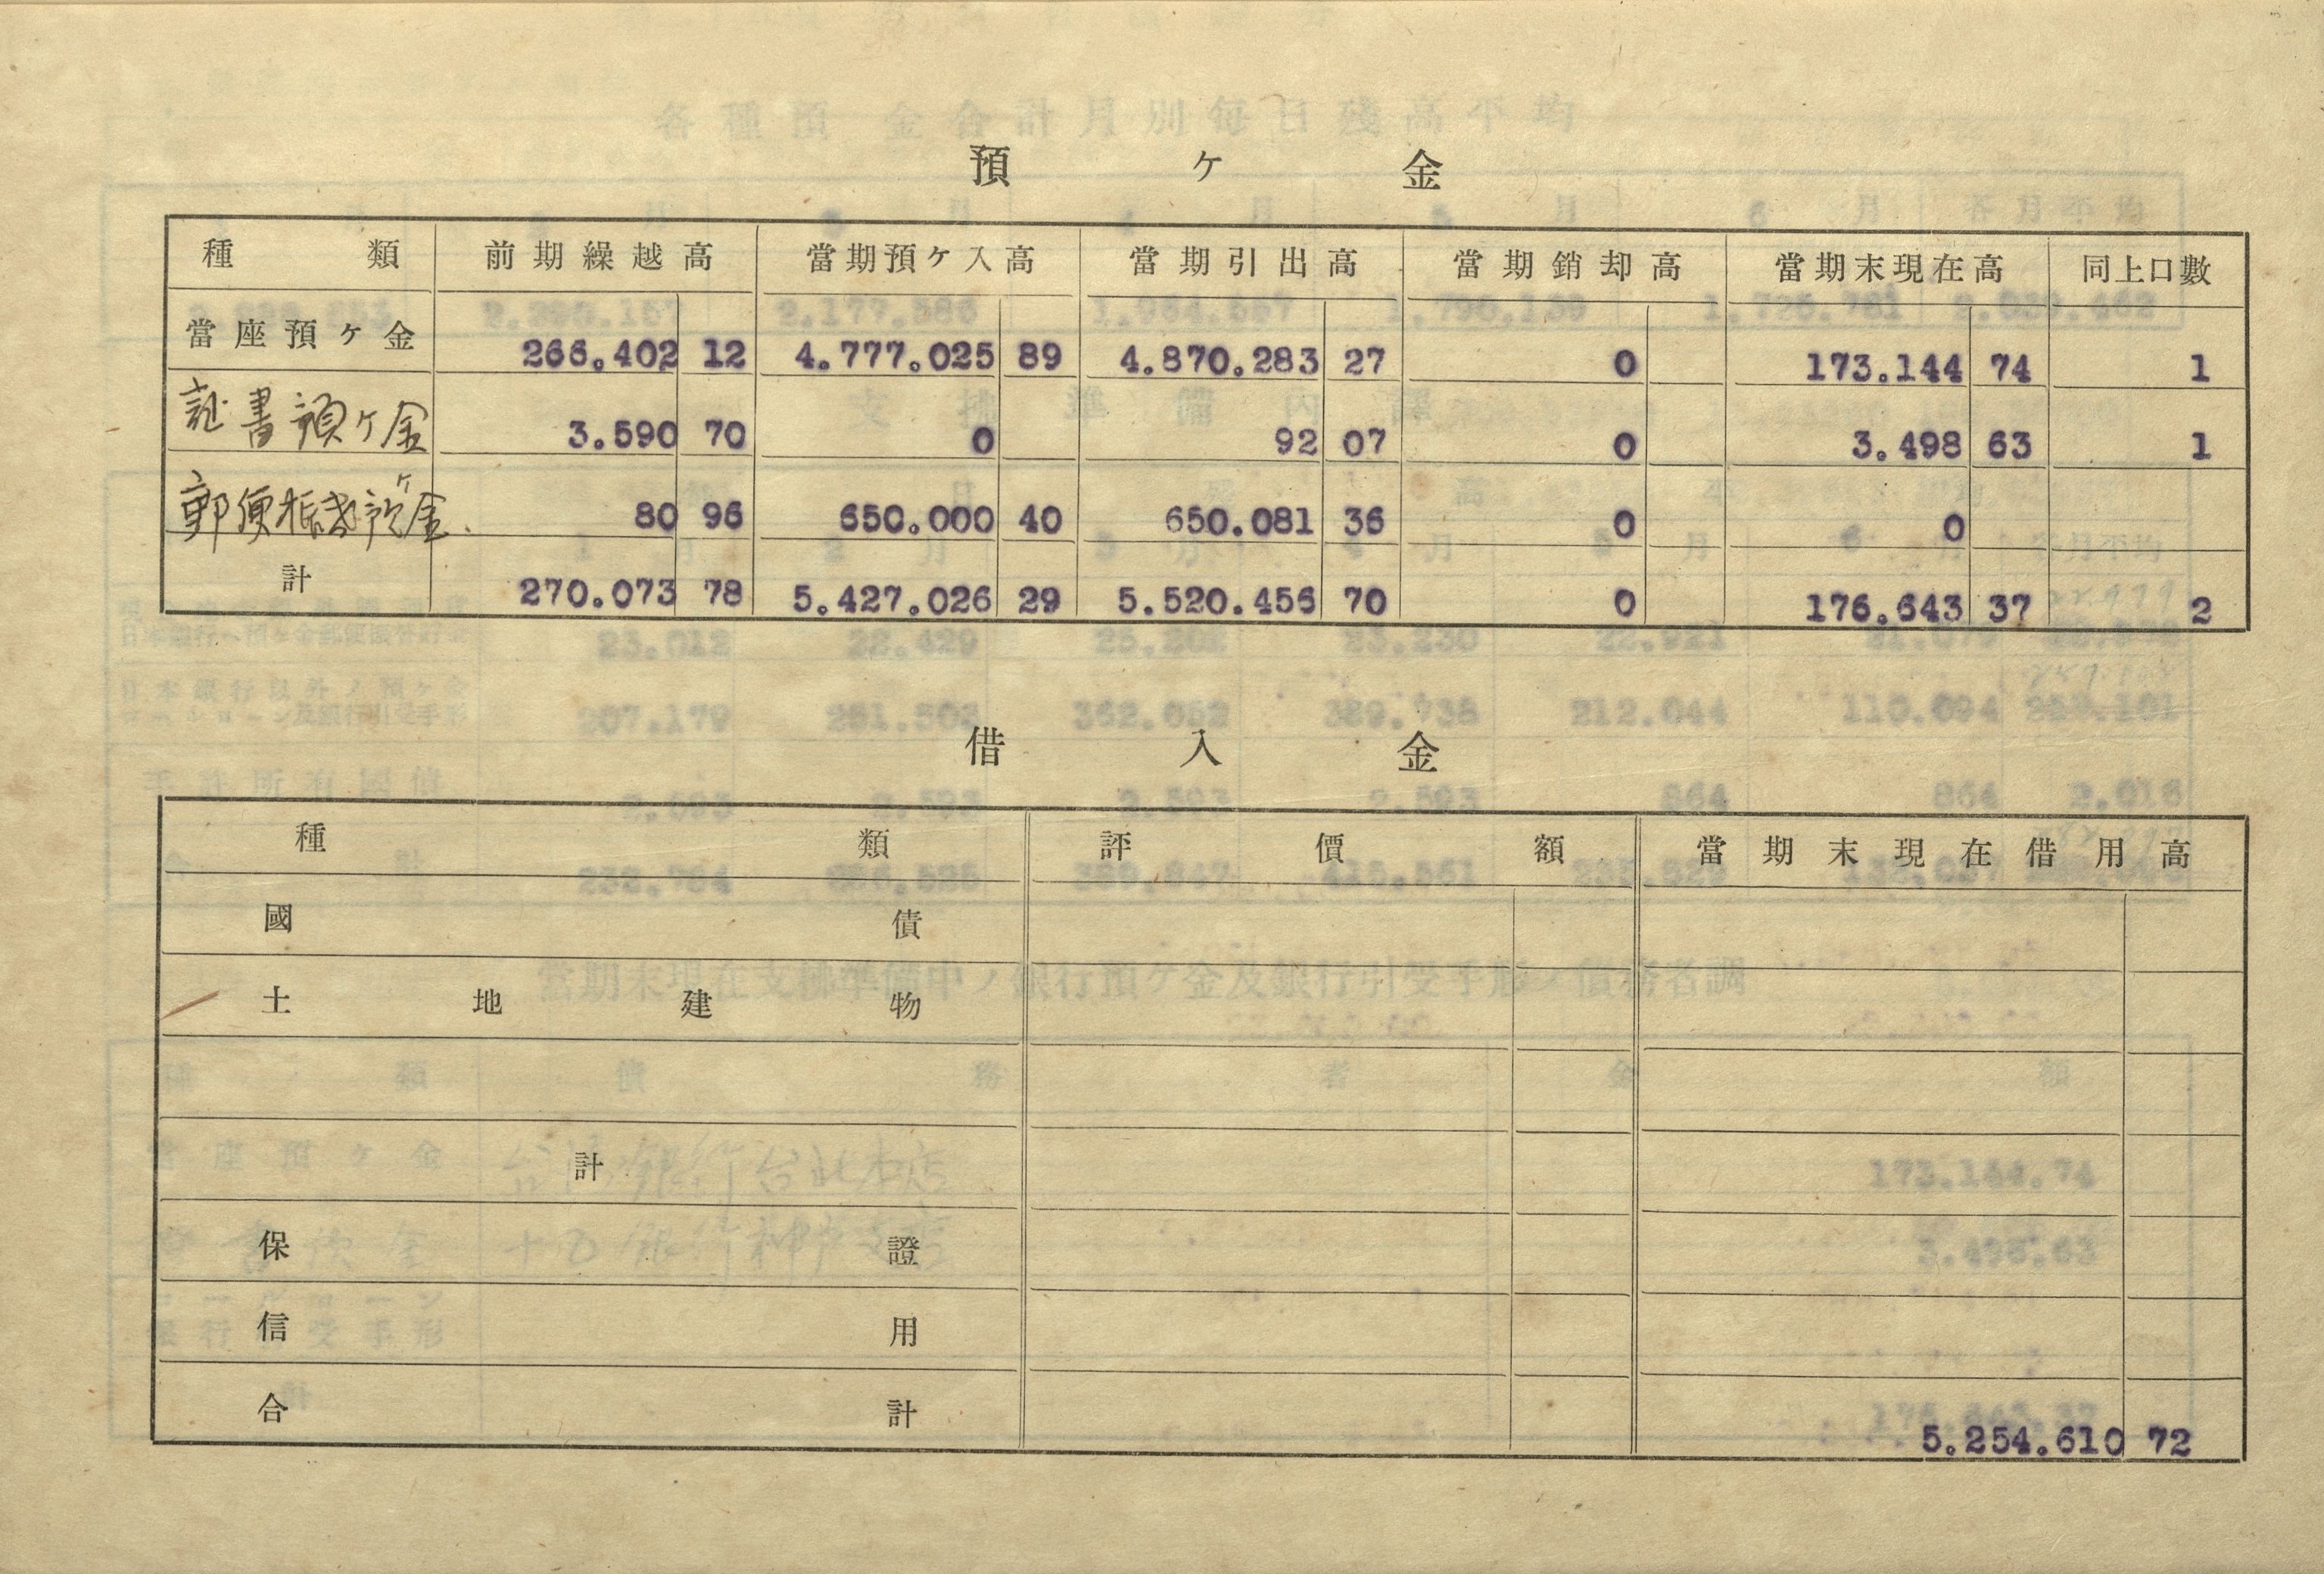 預ヶ金
種類 前期繰越高 當期預ケ入高 當期引出高 當期銷却高 當期末現在高 同上口數
當座預ケ金 266.402 12 4.777.025 89 4.870.283 27 0 173.144 74 1
証書預ケ金 3.590 70 0 92 07 0 3.498 63 1
郵便振替預ケ金 80 96 650.000 40 650.081 36 0 0
計 270.073 78 5.427.026 29 5.520.456 70 0 176.643 37 2
借入金
種類 評價額 當期末現在借用高
國債
土地建物
計
保證
信用
合計 5.254.610 72